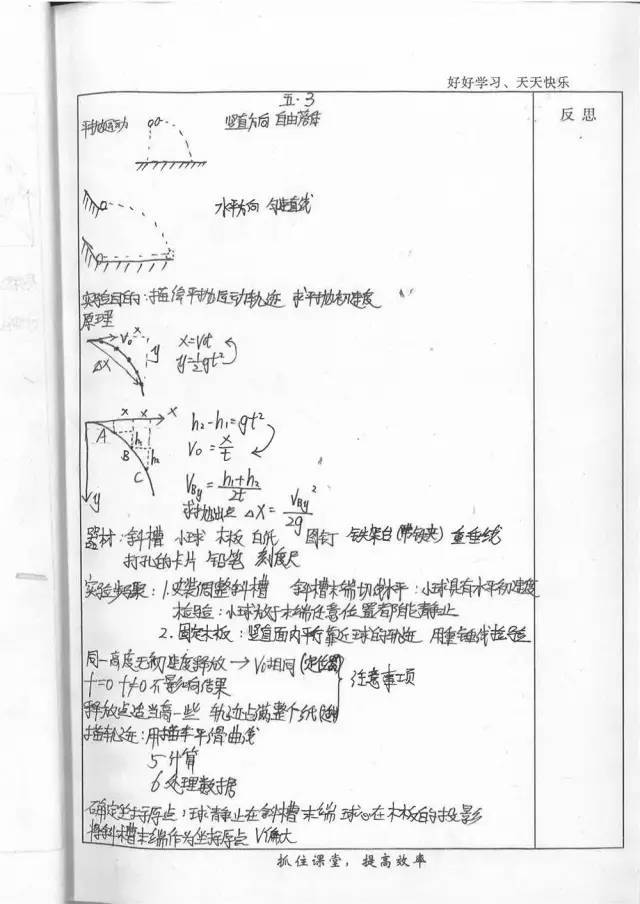 好好学习、天天快乐
反思
五·3
平抛运动 竖直方向 自由落体
水平方向 匀速直线
实验目的:描绘平抛运动轨迹 求平抛初速度
原理
V₀ x y ΔX
x=V₀t
y=½gt²
x x X
A B C h₁ h₂ y
h₂-h₁=gt²
V₀=x/t
V_By=(h₁+h₂)/2t
求抛出点 ΔX=V_By²/2g
器材:斜槽 小球 木板 白纸 图钉 铁架台(带铁夹) 重垂线
打孔的卡片 铅笔 刻度尺
实验步骤:1.安装调整斜槽 斜槽末端切线水平:小球具有水平初速度
检验:小球放于末端任意位置都能静止
2.固定木板:竖直面内平行靠近球的轨迹 用重锤线检验
同一高度无初速度释放→V₀相同(定位器)
f=0 f≠0 不影响结果
注意事项
释放点适当高一些 轨迹占满整个纸
描轨迹:用平滑曲线
5 计算
6 处理数据
确定坐标原点:球静止在斜槽末端 球心在木板的投影
将斜槽末端作为坐标原点 V偏大
抓住课堂,提高效率